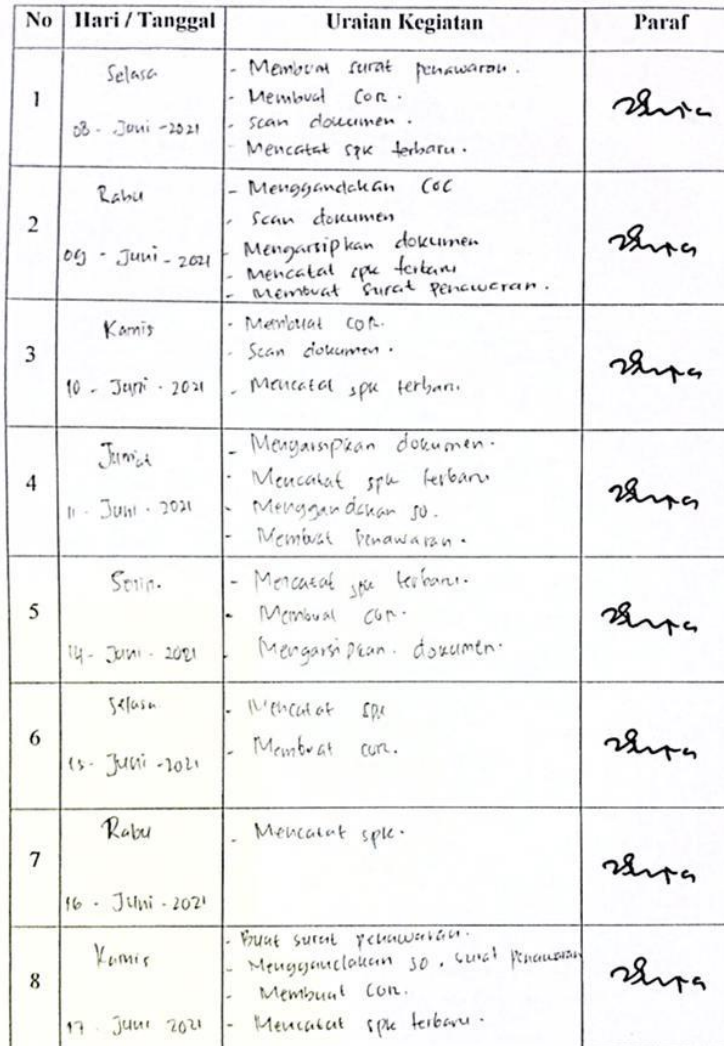 No Hari / Tanggal Uraian Kegiatan Paraf
1
Selasa
08 - Juni - 2021
- Membuat surat penawaran.
- Membuat COR.
- Scan dokumen.
- Mencatat spk terbaru.
2
Rabu
09 - Juni - 2021
- Menggandakan COC
- Scan dokumen
- Mengarsipkan dokumen
- Mencatat spk terbaru
- Membuat surat penawaran.
3
Kamis
10 - Juni - 2021
- Membuat COR.
- Scan dokumen.
- Mencatat spk terbaru
4
Jumat
11 - Juni - 2021
- Mengarsipkan dokumen.
- Mencatat spk terbaru
- Menggandakan SO.
- Membuat Penawaran.
5
Senin.
14 - Juni - 2021
- Mencatat spk terbaru.
- Membuat COR.
- Mengarsipkan dokumen.
6
Selasa
15 - Juni - 2021
- Mencatat spk
- Membuat COR.
7
Rabu
16 - Juni - 2021
- Mencatat spk.
8
Kamis
17 - Juni 2021
- Buat surat penawaran.
- Menggandakan SO, surat penawaran
- Membuat COR.
- Mencatat spk terbaru.